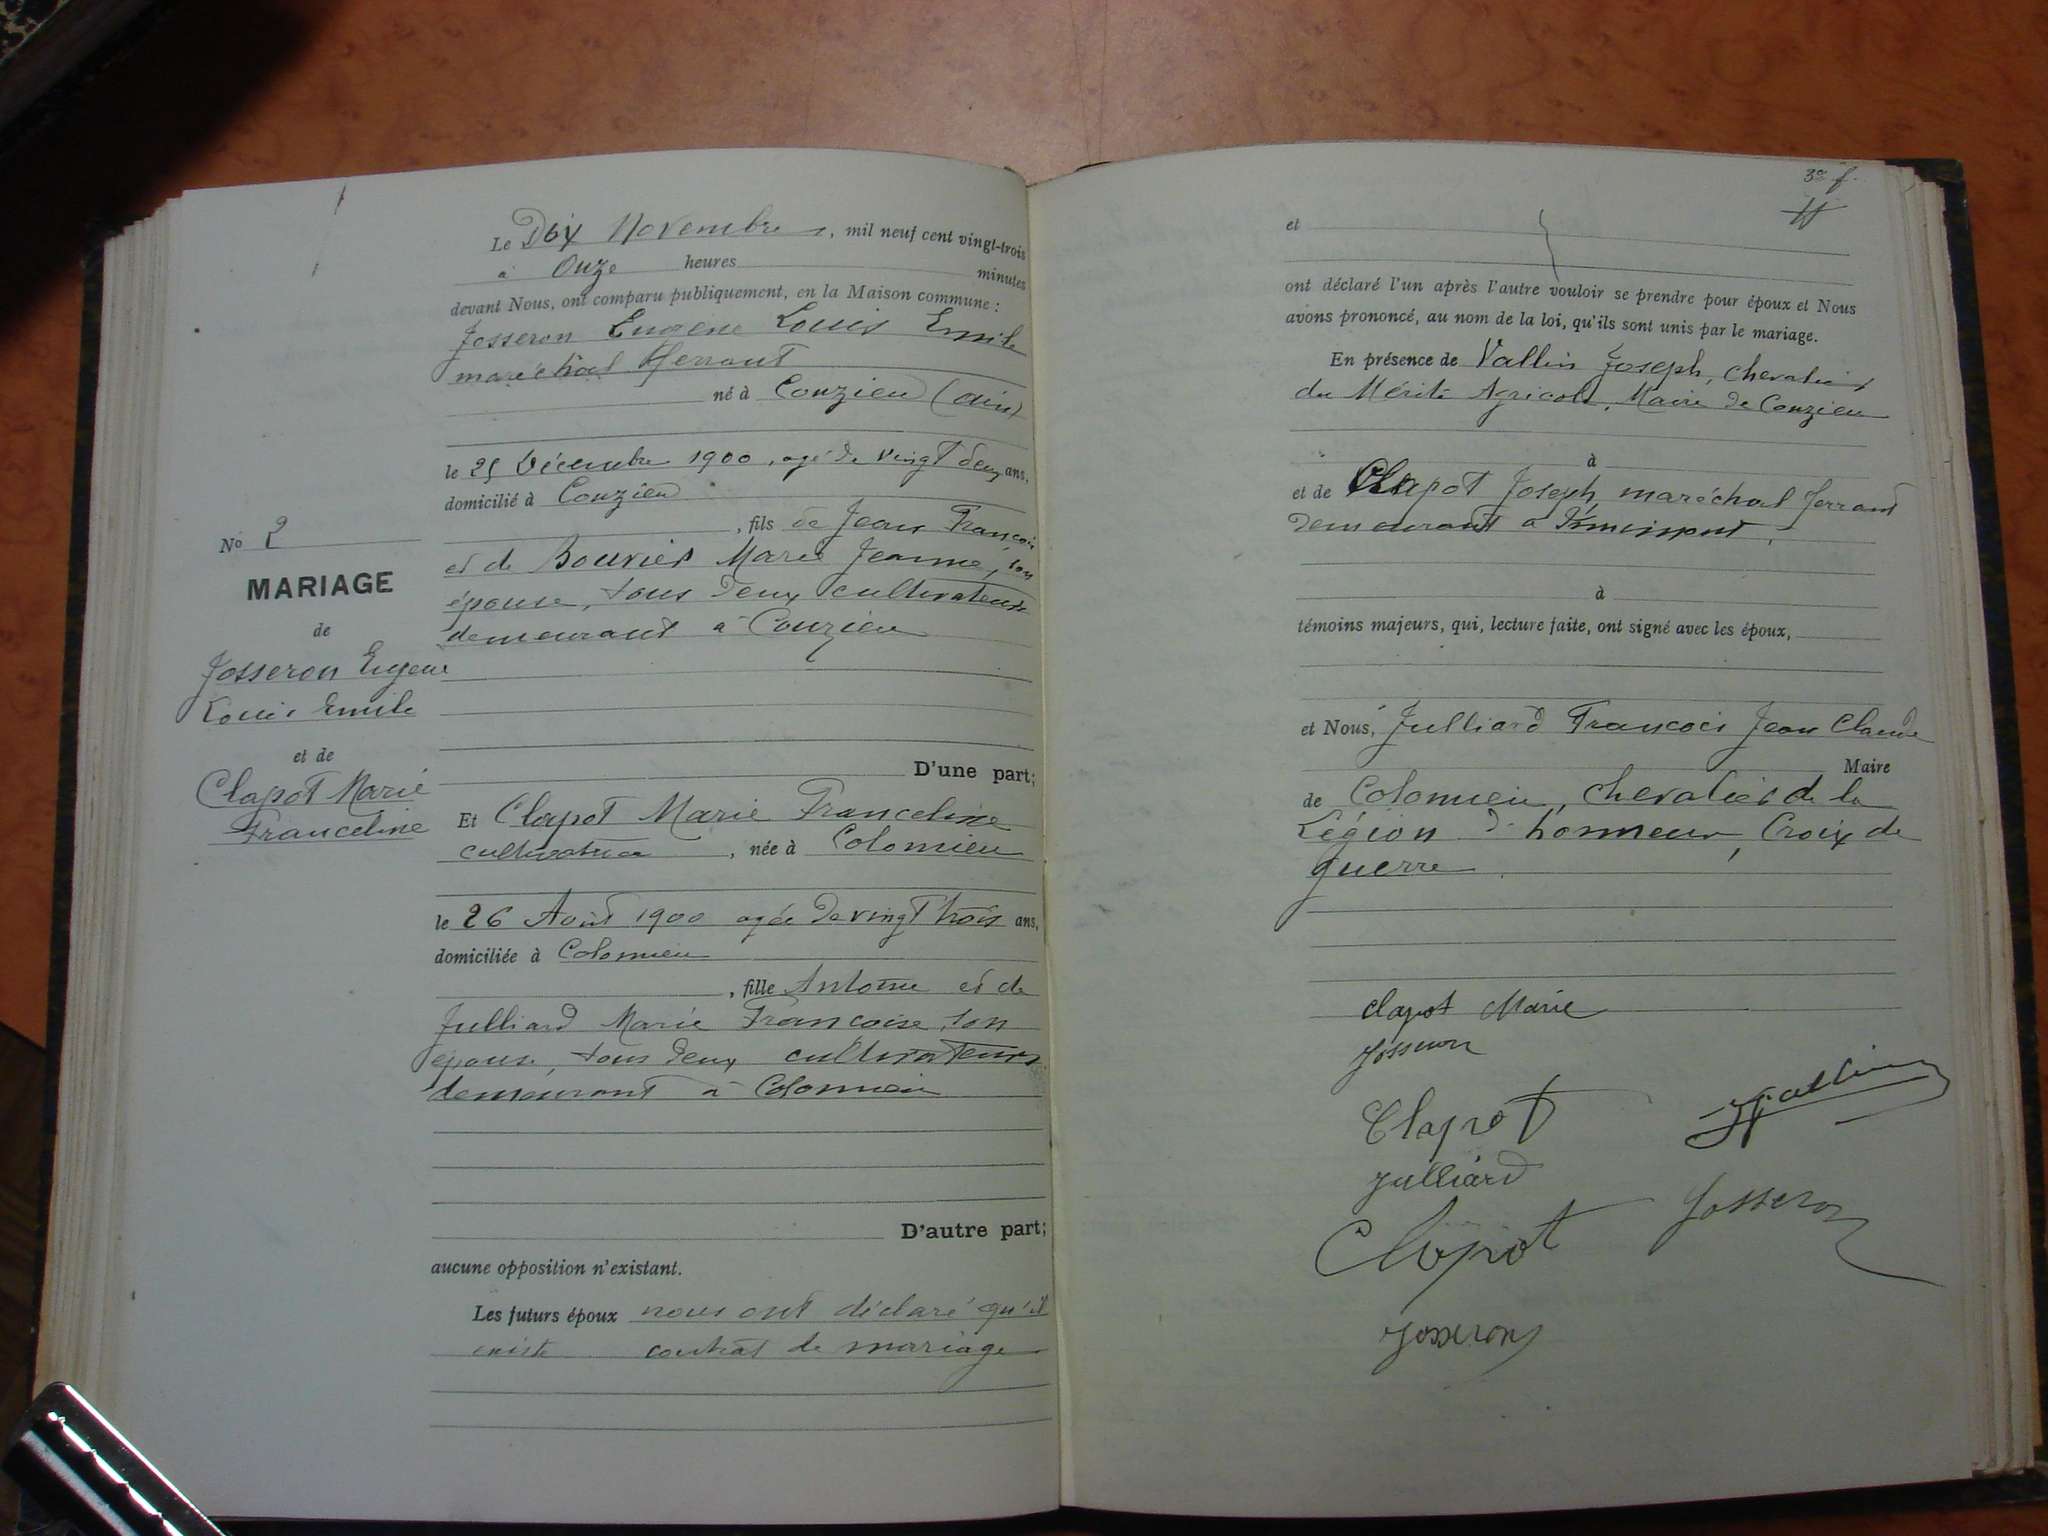 Le Dix Novembre, mil neuf cent vingt-trois
à Onze heures minutes
devant Nous, ont comparu publiquement, en la Maison commune :
Josseron Eugène Louis Emile
maréchal ferrant
né à Conzieu (Ain)
le 25 Décembre 1900, agé de vingt deux ans,
domicilié à Conzieu
, fils de Jean François
et de Bouvier Marie Jeanne, son
épouse, tous deux cultivateurs
demeurant à Conzieu
No 2
MARIAGE
de
Josseron Eugène
Louis Emile
et de
Clapot Marie
Franceline
D'une part;
Et Clapot Marie Franceline
cultivatrice, née à Colomieu
le 26 Août 1900 agée de vingt trois ans,
domiciliée à Colomieu
, fille Antoine et de
Julliard Marie Françoise, son
épouse, tous deux cultivateurs
demeurant à Colomieu
D'autre part;
aucune opposition n'existant.
Les futurs époux nous ont déclaré qu'il
existe contrat de mariage
3e f.
et
ont déclaré l'un après l'autre vouloir se prendre pour époux et Nous
avons prononcé, au nom de la loi, qu'ils sont unis par le mariage.
En présence de Vallin Joseph, chevalier
du Mérite Agricole, Maire de Conzieu
à
et de Clapot Joseph, maréchal ferrant
demeurant à
à
témoins majeurs, qui, lecture faite, ont signé avec les époux,
et Nous, Julliard François Jean Claude
Maire
de Colomieu, chevalier de la
Légion d'honneur, Croix de
guerre.
Clapot Marie
Josseron
Clapot
Vallin
Julliard
Josseron
Clapot
Josseron